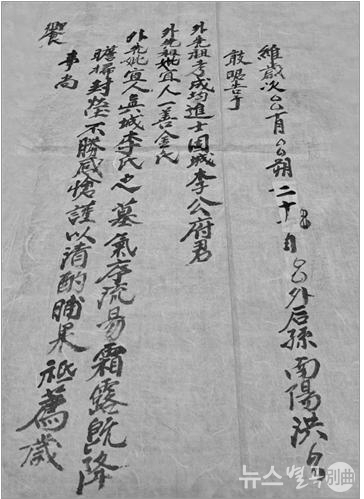 維歲次厶月厶朔二十日厶外后孫南陽洪厶
敢昭告于
外先祖考成均進士固城李公府君
外先祖妣宜人一善金氏
外先妣宜人眞城李氏之墓氣序流易霜露旣降
瞻掃封塋不勝感愴謹以清酌脯果祗薦歲
事尚
饗
뉴스별곡 別曲